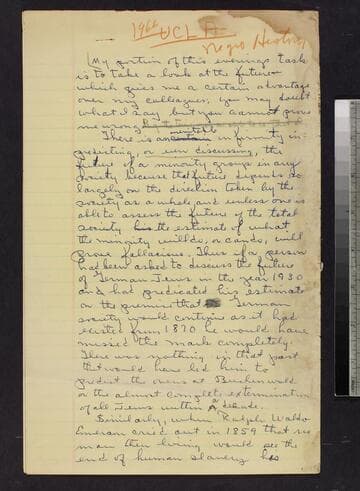 1966
UCLA
Negro History
My portion of this evenings task
is to take a look at the future
which gives me a certain advantage
over my colleagues, you may doubt
what I say but you cannot prove
me wrong.
There is an inevitable infirmity in
predicting, or even discussing, the
future of a minority group in any
society because that future depends so
largely on the direction taken by the
society as a whole and unless one is
able to assess the future of the total
society his estimate of what
the minority will do, or can do, will
prove fallacious. Thus if a person
had been asked to discuss the future
of German Jews in the year 1930
and had predicated his estimate
on the premise that German
society would continue as it had
existed from 1870 he would have
missed the mark completely.
There was nothing in that past
that would have led him to
predict the ovens at Buchenwald
or the almost complete extermination
of all Jews within a decade.
Similarly, when Ralph Waldo
Emerson cried out in 1859 that no
man then living would see the
end of human slavery he